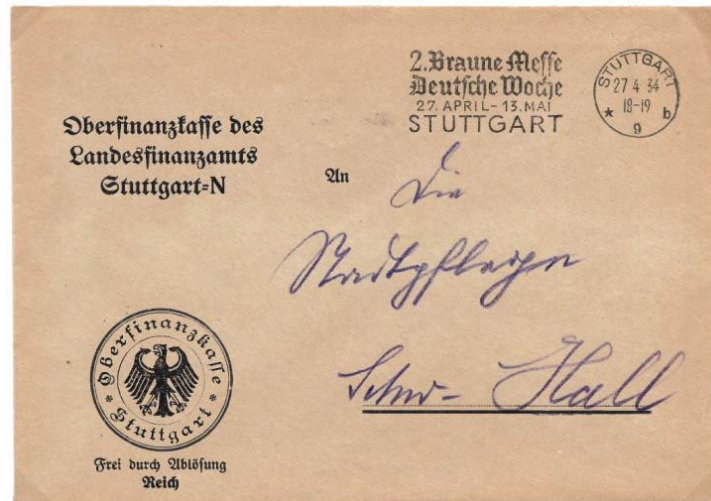 2. Braune Messe
Deutsche Woche
27. APRIL - 13. MAI
STUTTGART
STUTTGART
27 4 34
18-19
* b
g
Oberfinanzkasse des
Landesfinanzamts
Stuttgart=N
An
die
Stadtpflege
Schw- Hall
Oberfinanzkasse
* Stuttgart *
Frei durch Ablösung
Reich